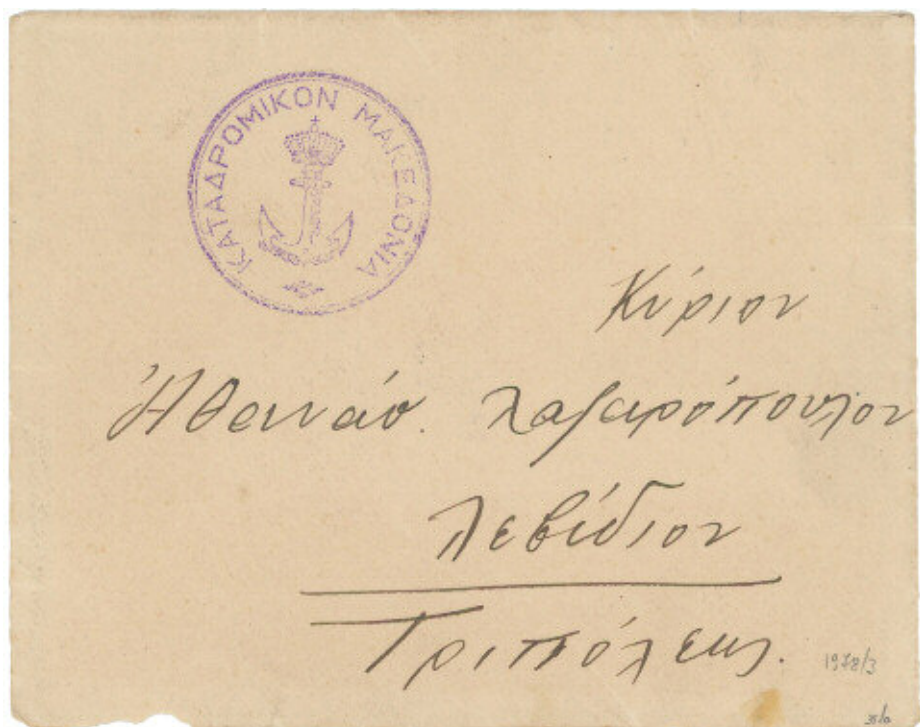 ΚΑΤΑΔΡΟΜΙΚΟΝ ΜΑΚΕΔΟΝΙΑ
Κύριον
Ἀθανάσ. Λαζαρόπουλον
Λεβίδιον
Τριπόλεως.